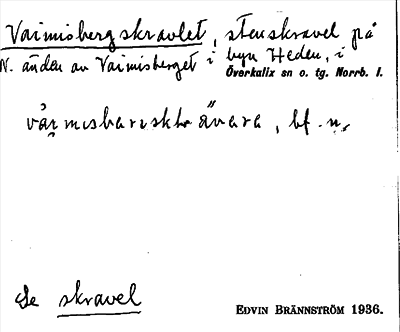 Vaimisbergskravlet, stenskravel på
N. änden av Vaimisberget i byn Heden, i
Överkalix sn o. tg. Norrb. l.
bf. n.
Se skravel
EDVIN BRÄNNSTRÖM 1936.